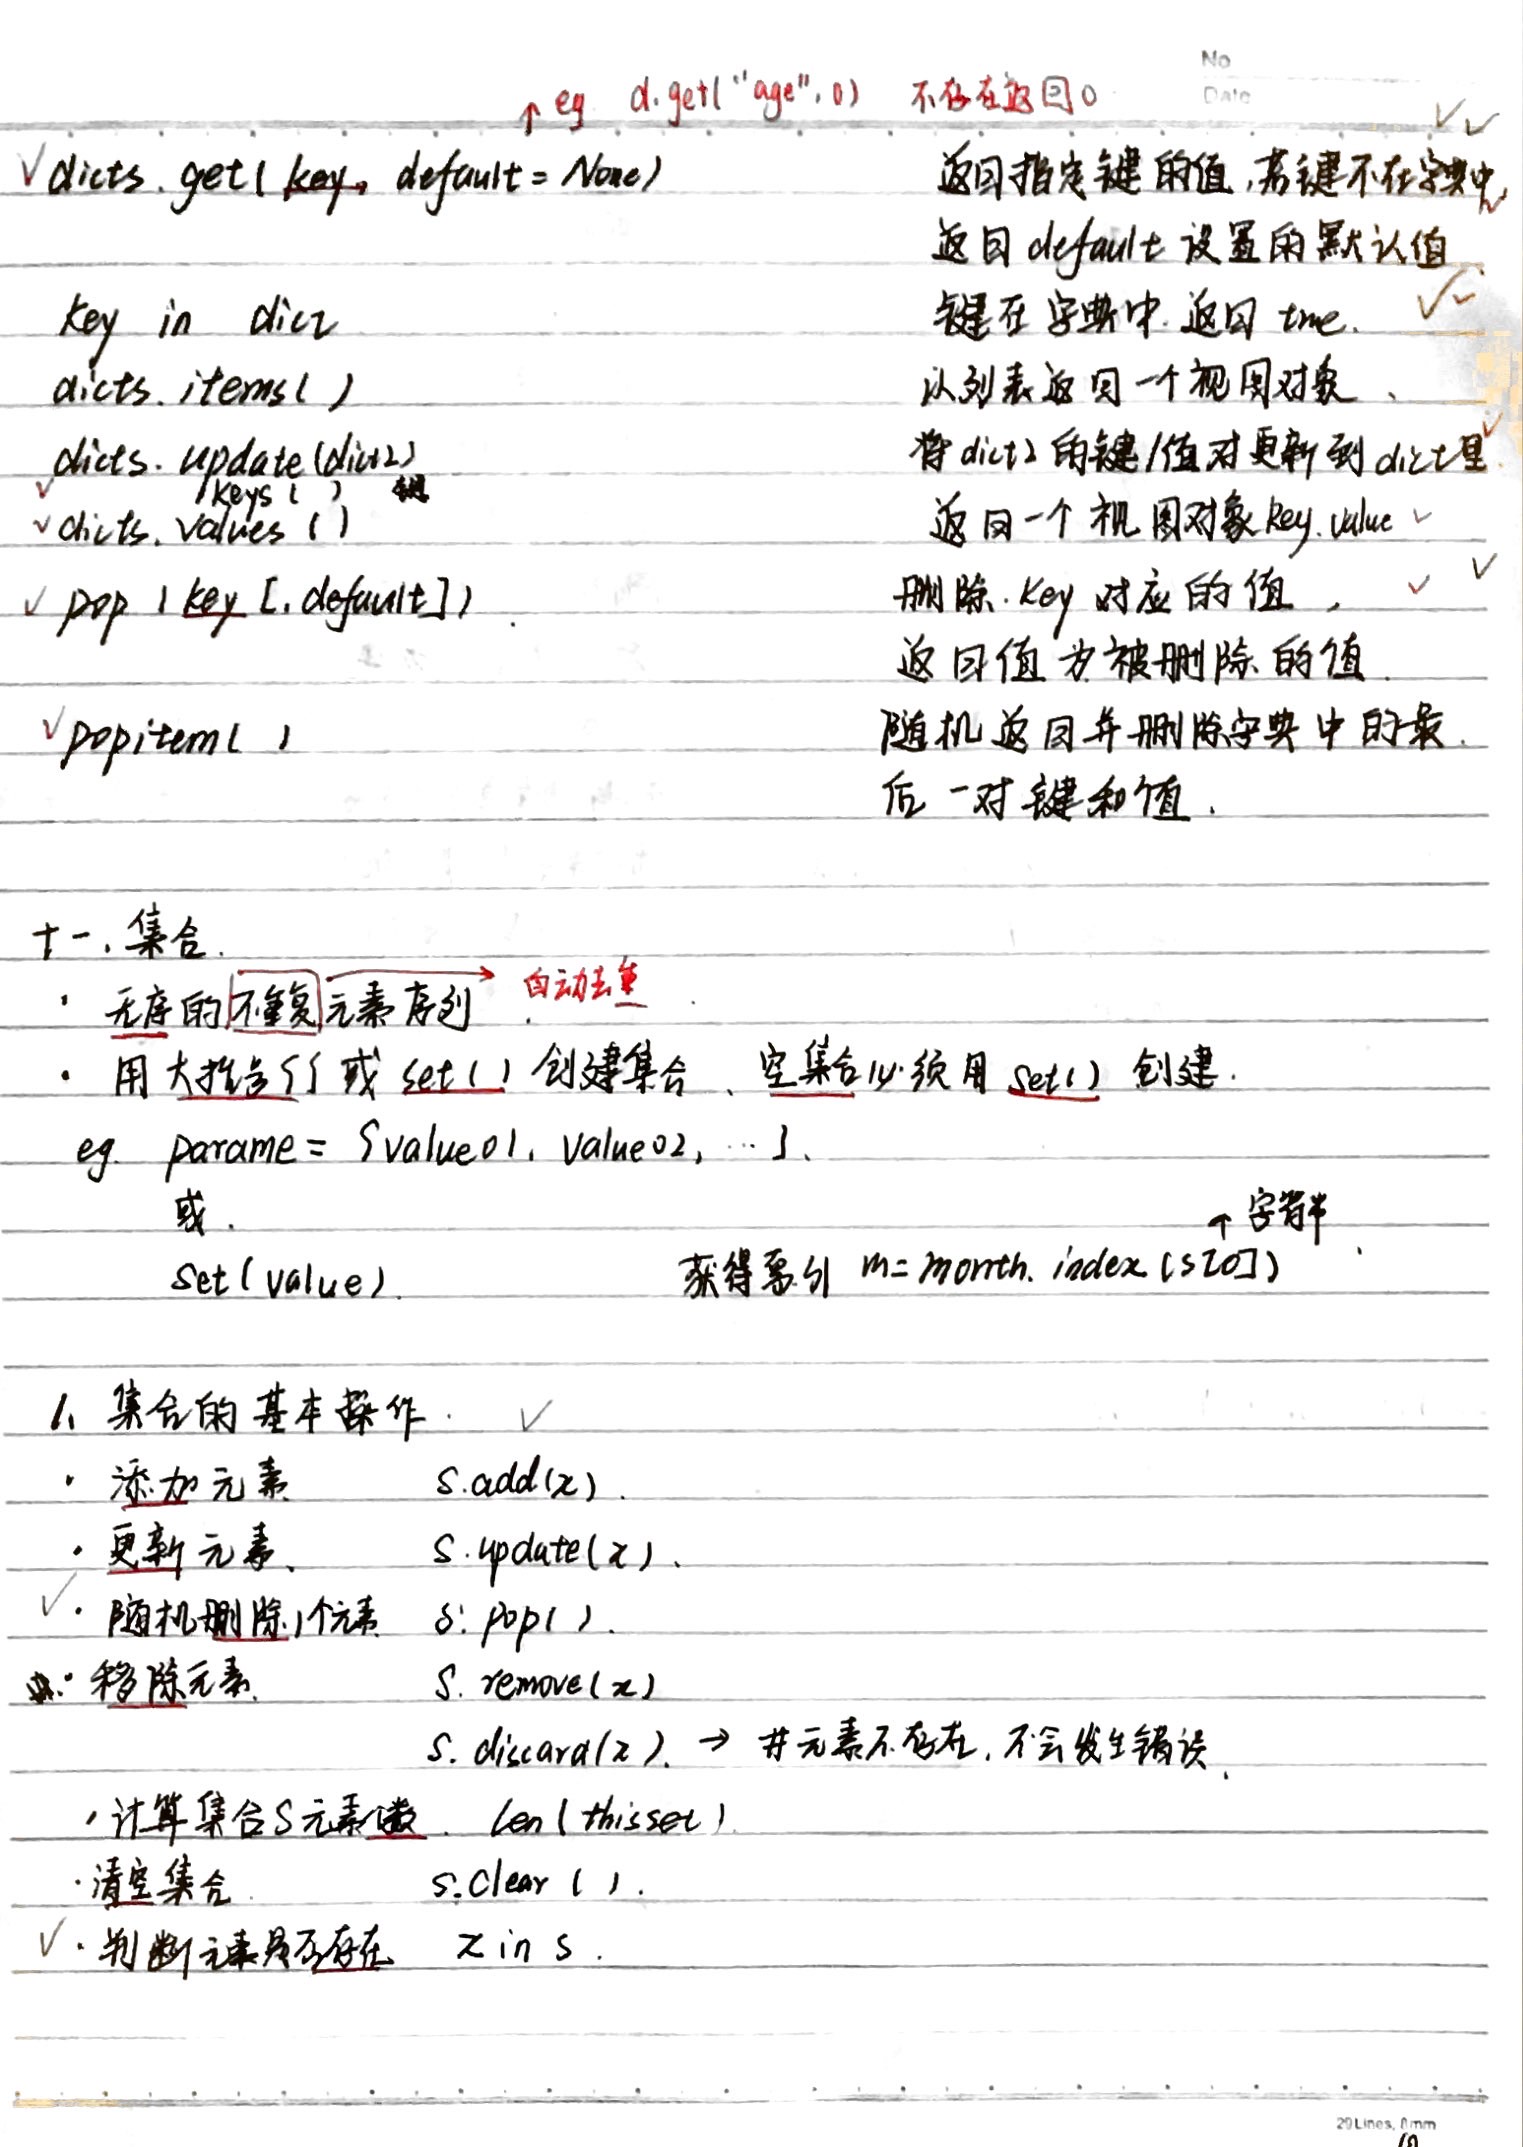 No
Date
↑ eg d.get("age", 0) 不存在返回0
✓ dicts.get(key, default = None) 返回指定键的值,若键不在字典中,
返回 default 设置的默认值
key in dict 键在字典中 返回 true.
dicts.items() 以列表返回一个视图对象、
dicts.update(dict2) 将dict2的键/值对更新到dict里
/keys() 键
✓ dicts.values() 返回一个视图对象key.value ✓
✓ pop(key[,default]) 删除key对应的值,
返回值为被删除的值.
✓ popitem() 随机返回并删除字典中的最
后一对键和值.
十一、集合.
· 无序的不重复元素序列 自动去重
· 用大括号{}或set()创建集合、空集合必须用set()创建.
eg. parame = {value01, value02, …}、
或.
↑字符串
set(value). 获得索引 m=month.index(s[0])
1、集合的基本操作. ✓
· 添加元素 s.add(x).
· 更新元素、 s.update(x).
✓ · 随机删除1个元素 s.pop().
· 移除元素. s.remove(x)
s.discard(x). → 若元素不存在,不会发生错误.
· 计算集合S元素个数. len(thisset).
· 清空集合. s.clear().
✓ · 判断元素是否存在 x in s.
29Lines, 8mm